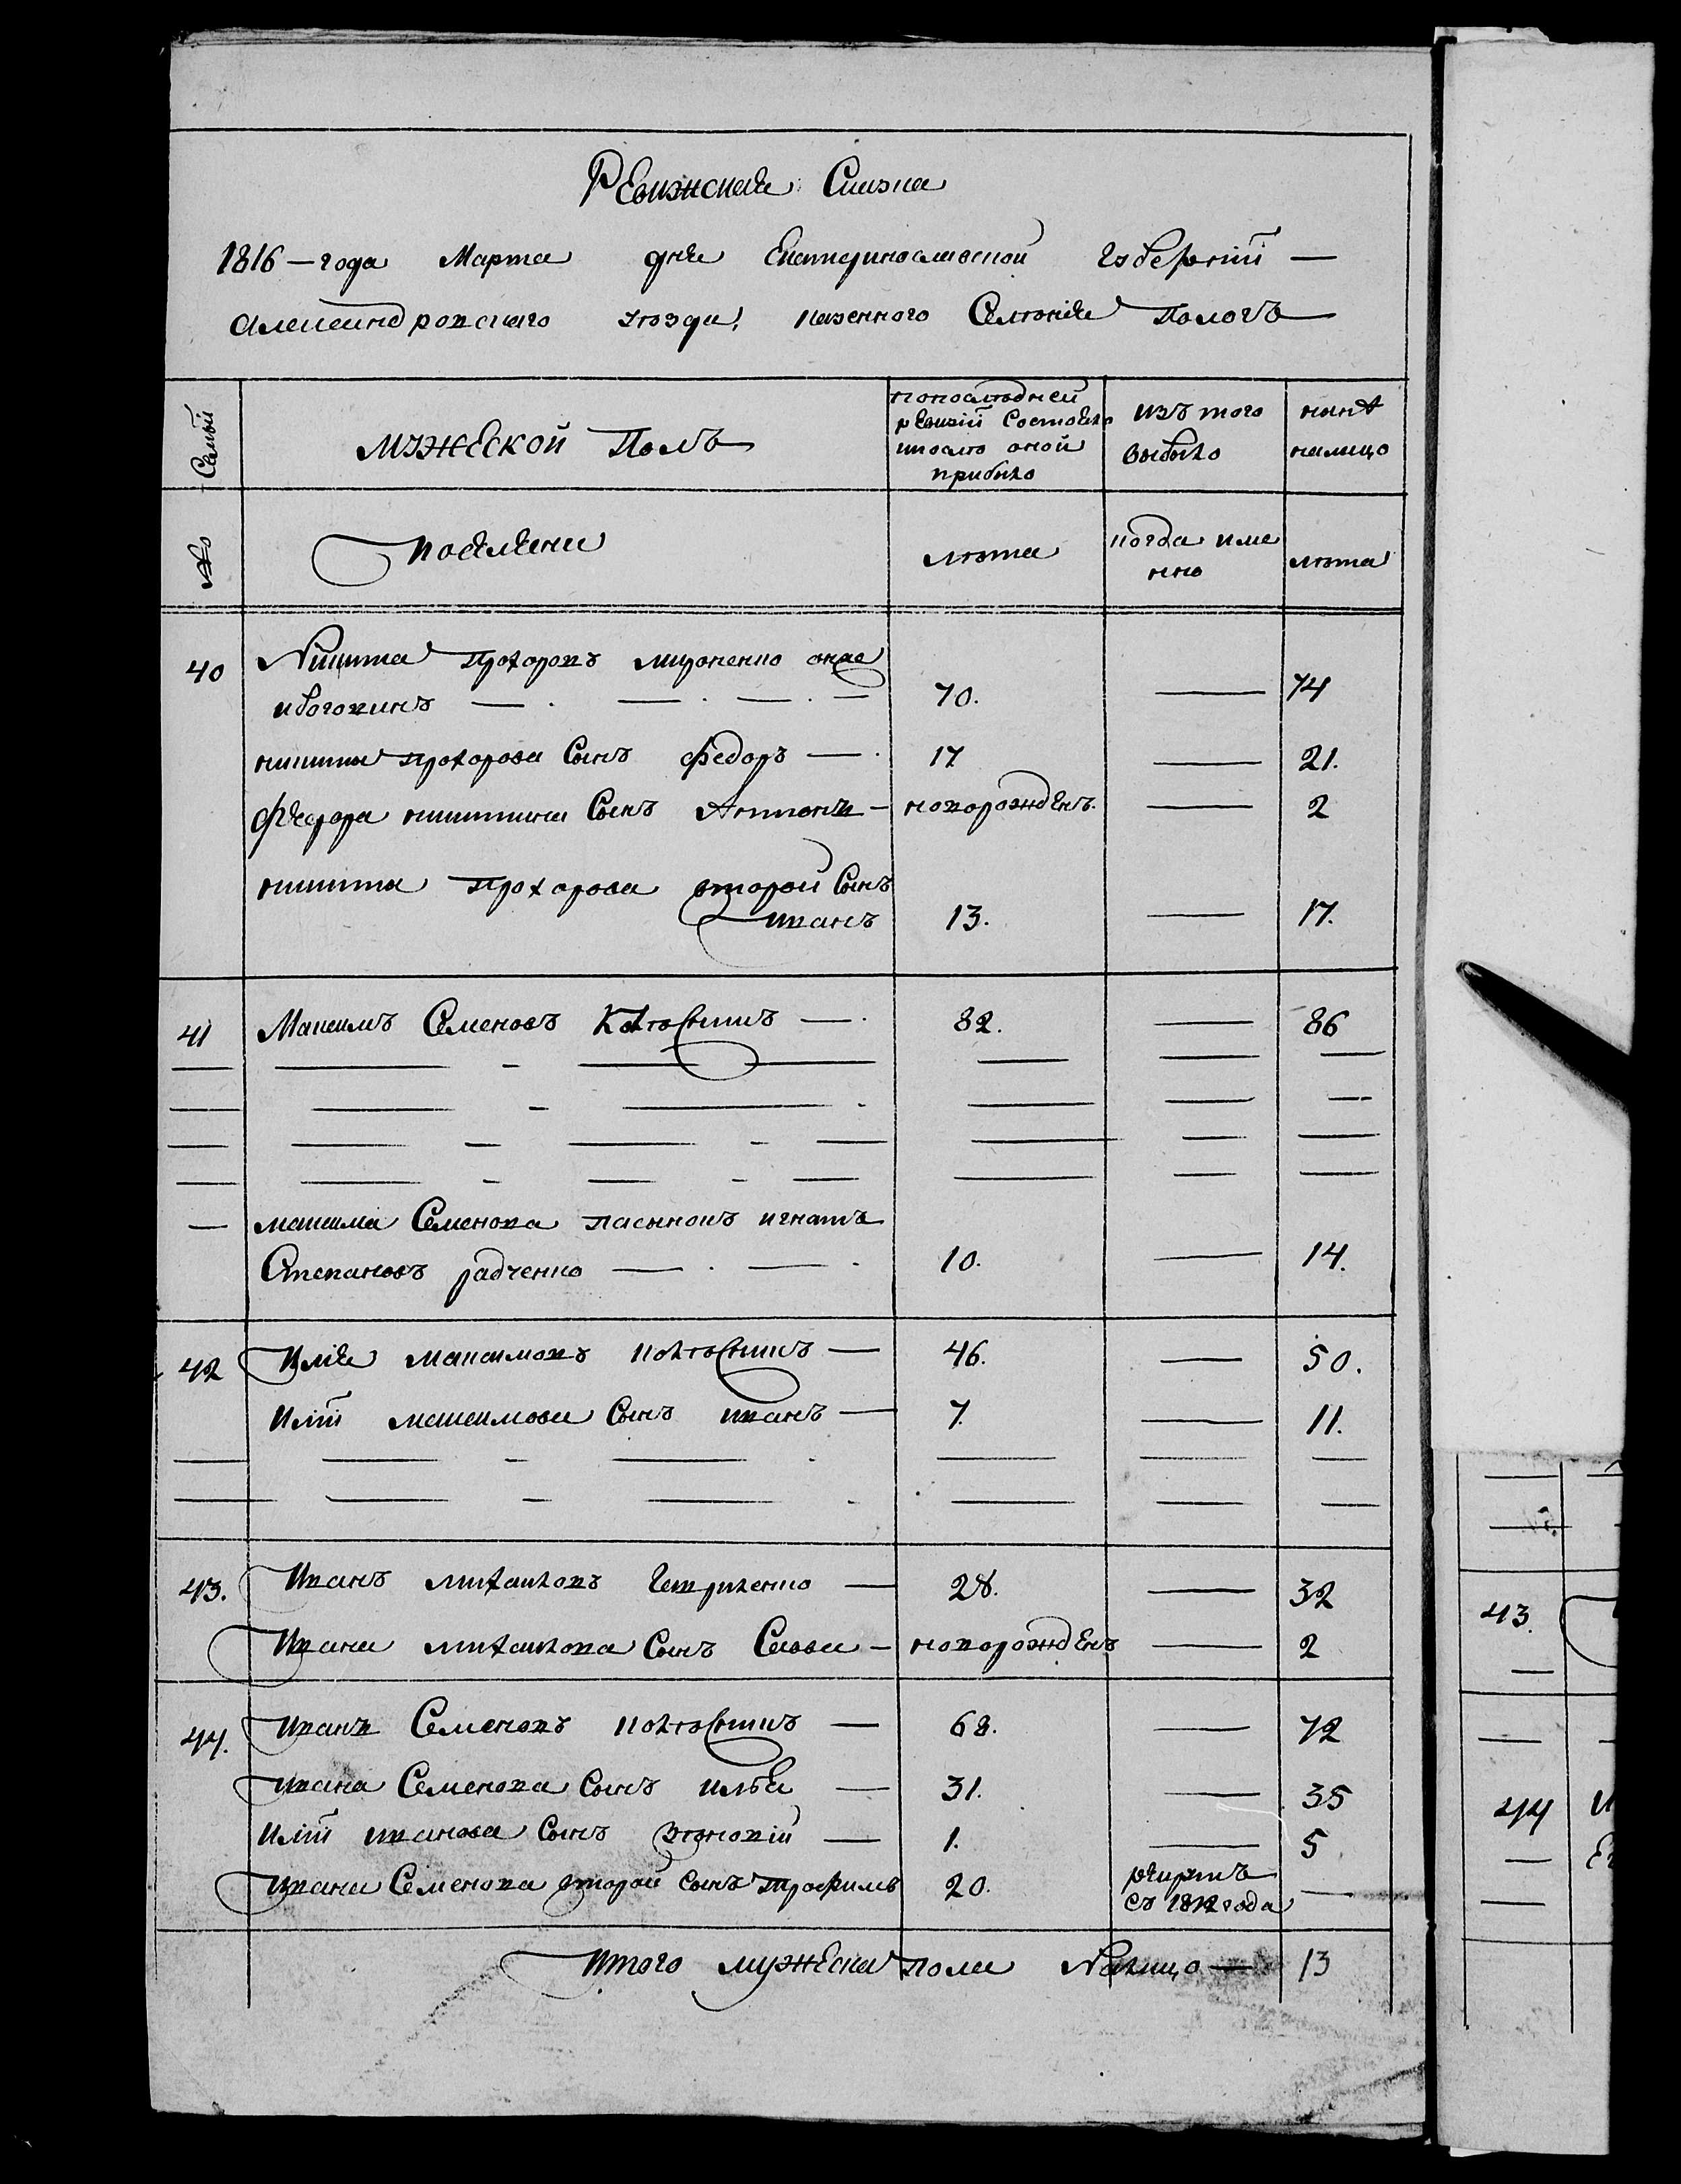 Ревижская Сказка
1816 — года Марта дня Екатеринославской губернии —
Александровскаго уезда, казенного Селения Пологъ
Семьи
мужеской Полъ
по последней
ревизии Состояло
и после оной
прибыло
изъ того
выбыло
ныне
налицо
№
поселяни
лета
когда име
нно
лета
40 Никита Прохоровъ мироненко онже
70. — 74
никиты прохорова Сынъ федоръ — 17 — 21.
федора никитина Сынъ Антонъ — новорожденъ. — 2
никиты Прохорова второй Сынъ
иванъ 13. — 17.
41 Максимъ Семеновъ — 82. — 86
— максима Семенова пасынокъ игнатъ
Степановъ радченко — 10. — 14.
42 Илья максимовъ — 46. — 50.
Ильи максимова Сынъ иванъ — 7. — 11.
43. Иванъ михайловъ — 28. — 32
Ивана михайлова Сынъ Савва — новорожденъ — 2
44. иванъ Семеновъ — 68. — 72
ивана Семенова Сынъ илья — 31. — 35
Ильи иванова Сынъ — 1. — 5
ивана Семенова второй сынъ Трофимъ 20.
съ 1812 года —
Итого мужеска пола Налицо — 13
43.
44